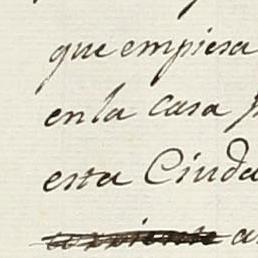 que empiesa
en la casa
esta Ciuda